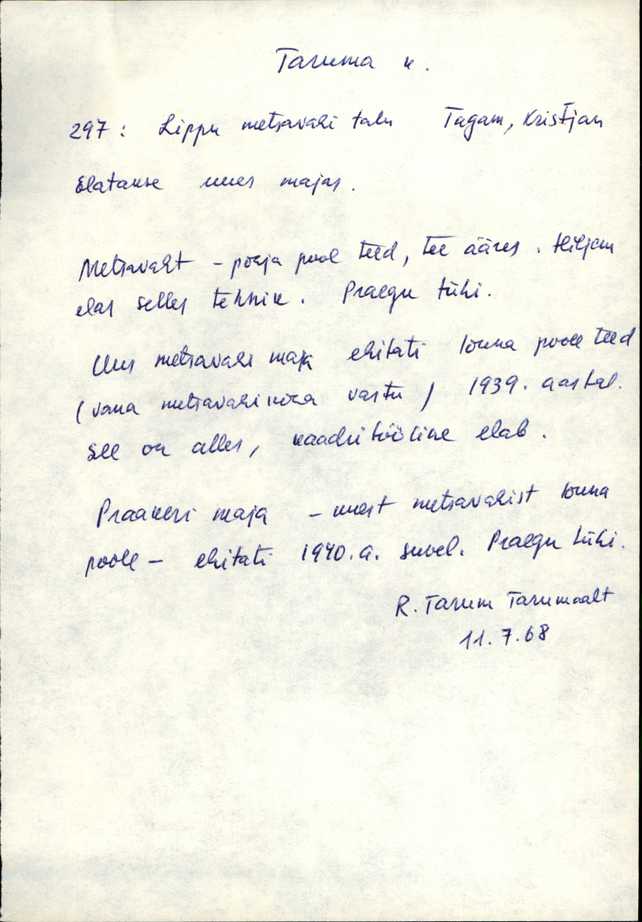 Taruma k.
297: Lippu metsavahi talu Tagam, Kristjan
Elatakse uues majas.
Metsavaht - põhja pool teed, tee ääres. Hiljem
elas selles tehnik. Praegu tühi.
Uus metsavahi maja ehitati lõuna poole teed
(vana metsavahikoha vastu) 1939. aastal.
See on alles, kaadritööline elab.
Praakeri maja - uuest metsavahist lõuna
poole - ehitati 1940.a. suvel. Praegu tühi.
R. Tarum Tarumaalt
11.7.68